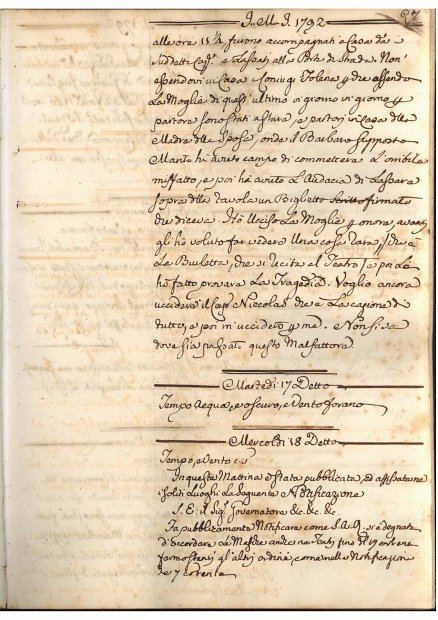 I. M. I. 1792
27
alle ore 11¼ furono accompagnati a Casa da i
suddetti e alla Porta di Strada. Non
essendovi in Casa Coniugi che essendo
La Moglie di quest' ultimo in giorno in giorno p
partora sono stati a stare, e partorì in Casa della
Madre della Sposa, onde il Barbaro supposto
Marito hà avuto campo di commettere L'orribile
misfatto, e poi hà avuto L'Audacia di Lasciare
sopra della tavola un Biglietto firmato
che diceva. Hò Ucciso La Moglie p onore, avanti
gli hò voluto far vedere Una cosa rara, / cioè
La Burletta, che si recita al Teatro / e poi Li
hò fatto provare La Tragedia. Voglio ancora
uccidere il Niccolas che è La cagione di
tutto, e poi mi ucciderò p me. Non si sa
dove sia questo Malfattore.
Martedì 17 Detto
Tempo Acqua, e oscuro, e Vento forano
Mercoldì 18 Detto
Tempo, e Vento c. s.
In questa Mattina è stata pubblicata, ed affissata ne
soliti Luoghi La seguente Notificazione
S. E. il Sig.r Governatore &c. &c. &c.
Fà pubblicamente Notificare come S. A. R. si è degnata
d'accordare Le Maschere anche ne Teatri fino
fermo stanti gl' altri ordini, come nella Notificazione
de 7 Corrente